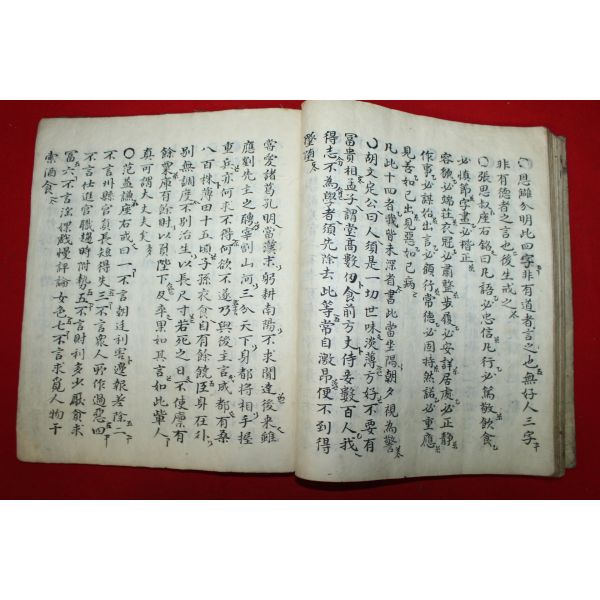 ○恩雔分明此四字非有道者言之也無好人三字
非有德者之言也後生戒之
○張思叔座右銘曰凡語必忠信凡行必篤敬飲食
必慎節字畫必楷正
容貌必端莊衣冠必肅整步履必安詳居處必正靜
作事必謀始出言必顧行常德必固持然諾必重應
見善如己出見惡如己病
凡此十四者我皆未深省書此當坐隅朝夕視為警
○胡文定公曰人須是一切世味淡薄方好不要有
冨貴相孟子謂堂高數仞食前方丈侍妾數百人我
得志不為學者須先除去此等常自激昂便不到得
墜墮
常愛諸葛孔明當漢末躬耕南陽不求聞達後來雖
應劉先主之聘宰割山河三分天下身都將相手握
重兵亦何求不得何欲不遂乃與後主言成都有桑
八百株薄田十五頃子孫衣食自有餘饒臣身在外
別無調度不別治生以長尺寸若死之日不使廩有
餘粟庫有餘財以負陛下及卒果如其言如此輩人
真可謂大丈夫矣
○范益謙座右戒曰一不言朝廷利害邊報差除二
不言州縣官員長短得失三不言衆人所作過惡四
不言仕進官職趍時附勢五不言財利多少厭貧求
冨六不言淫媟戲慢評論女色七不言求覓人物干
索酒食